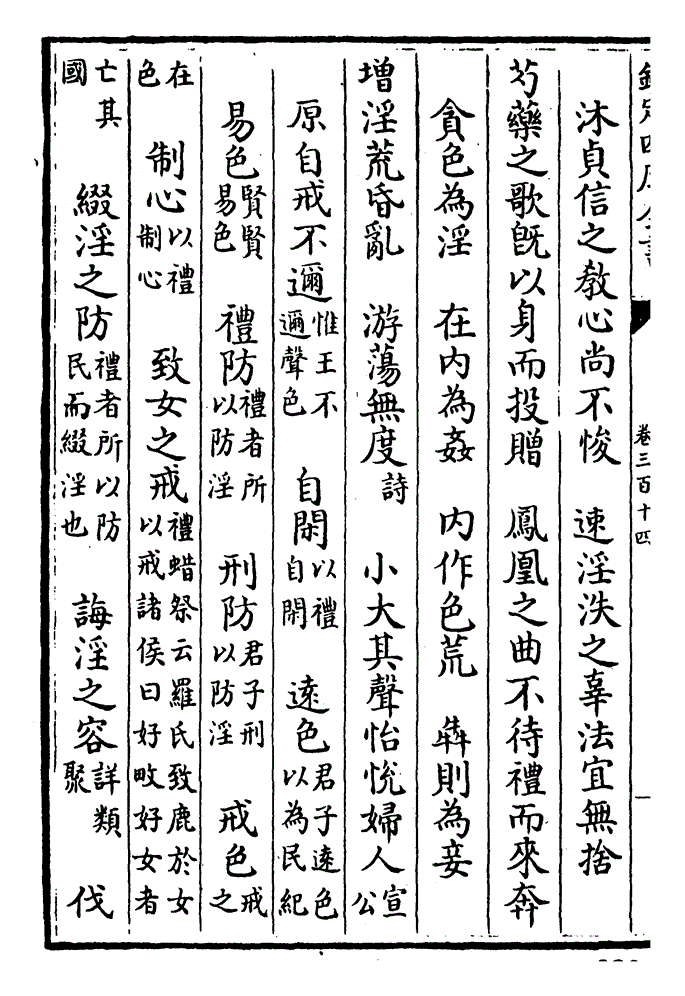 欽定四庫全書
卷三百十四
沐貞信之教心尚不悛　速淫泆之辜法宜無捨
芍藥之歌旣以身而投贈　鳳凰之曲不待禮而來奔
貪色為淫　在内為姦　内作色荒　犇則為妾
增淫荒昏亂　游蕩無度詩　小大其聲怡悅婦人宣公
原自戒不邇惟王不邇聲色　自閑以禮自閑　遠色君子遠色以為民紀
易色賢賢易色　禮防禮者所以防淫　刑防君子刑以防淫　戒色戒之
在色　制心以禮制心　致女之戒禮蜡祭云羅氏致鹿於女以戒諸侯曰好畋好女者
亡其國　綴淫之防禮者所以防民而綴淫也　誨淫之容詳類聚　伐